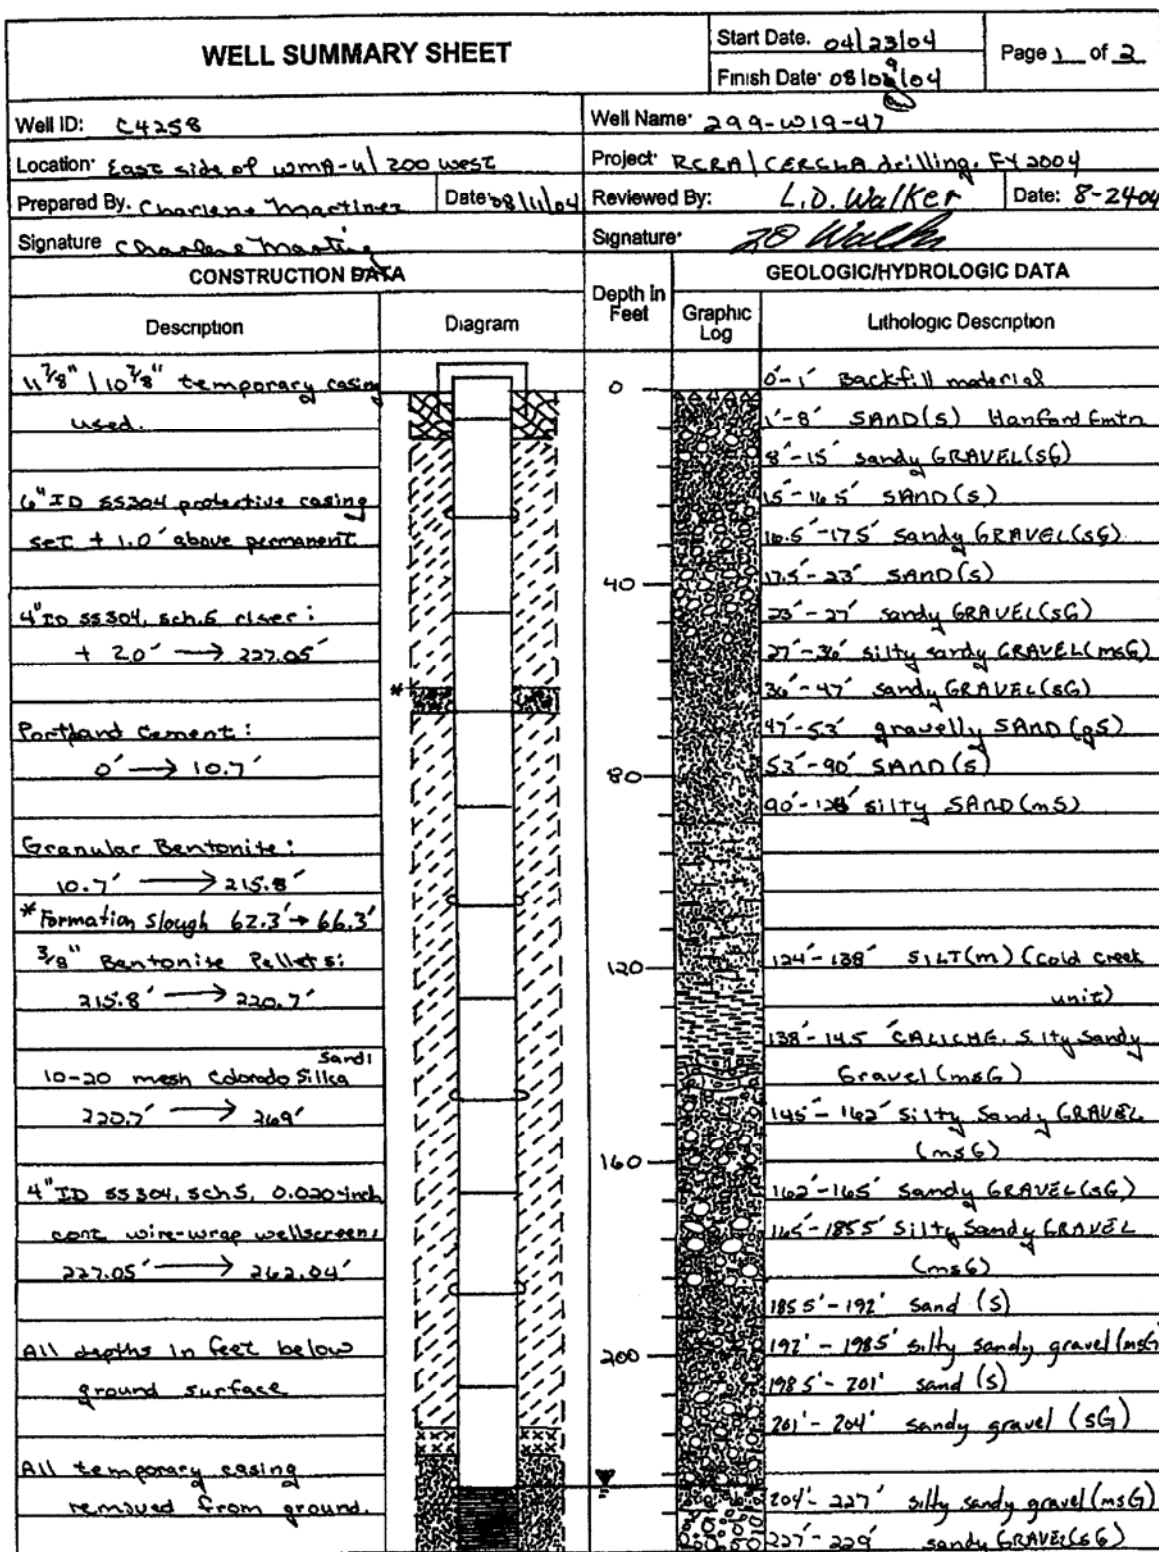 WELL SUMMARY SHEET
Start Date. 04/23/04
Finish Date: 08/09/04
Page 1 of 2
Well ID: C4258
Well Name: 299-W19-47
Location: East side of WMA-U/200 west
Project: RCRA/CERCLA drilling, FY2004
Prepared By. Charlene Martinez
Date: 08/11/04
Reviewed By: L.D. Walker
Date: 8-24-04
Signature Charlene Martinez
Signature: LD Walker
CONSTRUCTION DATA
GEOLOGIC/HYDROLOGIC DATA
Description
Diagram
Depth in Feet
Graphic Log
Lithologic Description
11 7/8" / 10 7/8" temporary casing
used.
6" ID SS304 protective casing
set + 1.0' above permanent
4" ID SS304, sch.5 riser:
+ 2.0' → 227.05'
*
Portland Cement:
0' → 10.7'
Granular Bentonite:
10.7' → 215.8'
* Formation Slough 62.3' → 66.3'
3/8" Bentonite Pellets:
215.8' → 220.7'
10-20 mesh Colorado Silica Sand:
220.7' → 269'
4" ID SS304, sch5, 0.020-inch
cont wire-wrap wellscreen:
227.05' → 262.04'
All depths in feet below
ground surface
All temporary casing
removed from ground.
0
40
80
120
160
200
0'-1' Backfill material
1'-8' SAND(S) Hanford Fmtn
8'-15' sandy GRAVEL(sG)
15'-16.5' SAND(S)
16.5'-17.5' sandy GRAVEL(sG)
17.5'-23' SAND(S)
23'-27' sandy GRAVEL(sG)
27'-36' silty sandy GRAVEL(msG)
36'-47' sandy GRAVEL(sG)
47'-53' gravelly SAND(gS)
53'-90' SAND(S)
90'- silty SAND(mS)
124'-138' SILT(m) (cold creek
unit)
138'-145' CALICHE, Silty Sandy
Gravel (msG)
145'-162' Silty Sandy GRAVEL
(msG)
162'-165' Sandy GRAVEL(sG)
165'-185 5' Silty Sandy GRAVEL
(msG)
185 5'-192' sand (S)
192'-198 5' silty sandy gravel (msG)
198 5'-201' sand (S)
201'-204' sandy gravel (sG)
204'-227' silty sandy gravel (msG)
227'-229' sandy GRAVEL(sG)